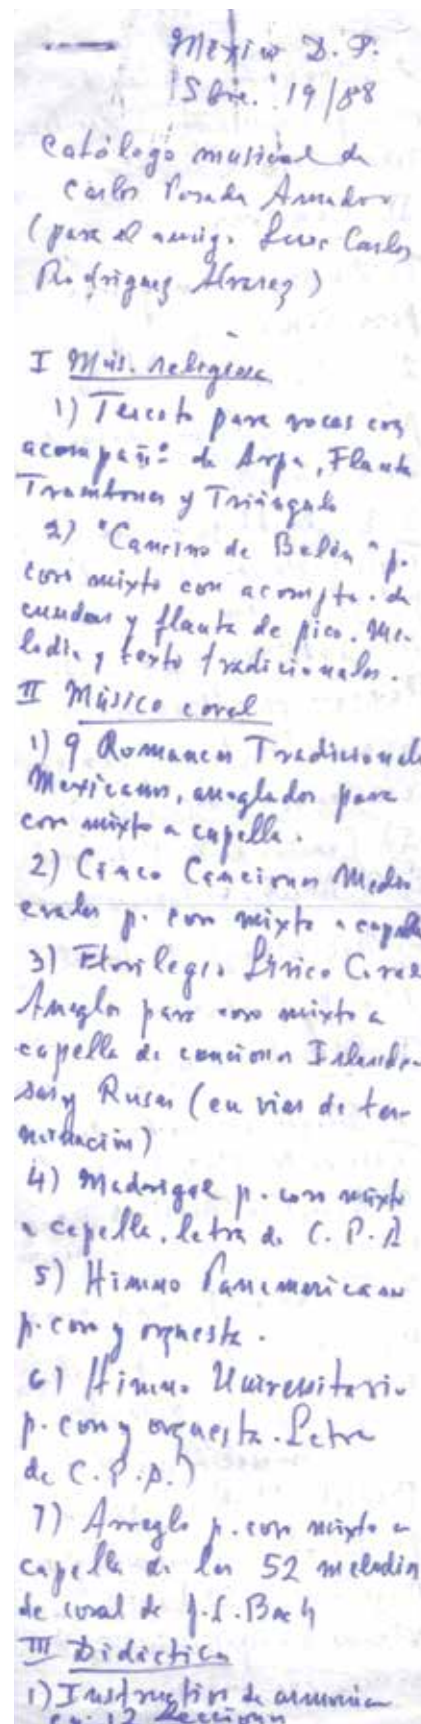 Mexico D. F.
Sbre. 19/88
Catálogo musical de
Carlos Posada Amador
(para el amigo Luis Carlos
Rodriguez Alvarez)
I Mús. religiosa
1) Terceto para voces con
acompañ.º de Arpa, Flauta
Trombones y Triángulo
2) "Camino de Belén" p.
coro mixto con acompto. de
cuerdas y flauta de pico. Me-
lodia y texto tradicionales.
II Música coral
1) 9 Romances Tradicionales
Mexicanos, arreglados para
coro mixto a capella.
2) Cinco Canciones Medio
evales p. coro mixto a capella
3) Florilegio Lírico Coral
Arreglos para coro mixto a
capella de canciones Islande-
sas y Rusas (en vias de ter-
minación)
4) Madrigal p. coro mixto
a capella, letra de C. P. A
5) Himno Panamericano
p. coro y orquesta.
6) Himno Universitario
p. coro y orquesta. Letra
de C. P. A.)
7) Arreglo p. coro mixto a
capella de las 52 melodias
de coral de J. S. Bach
III Didáctica
1) Instructivo de armonia
en 12 Lecciones